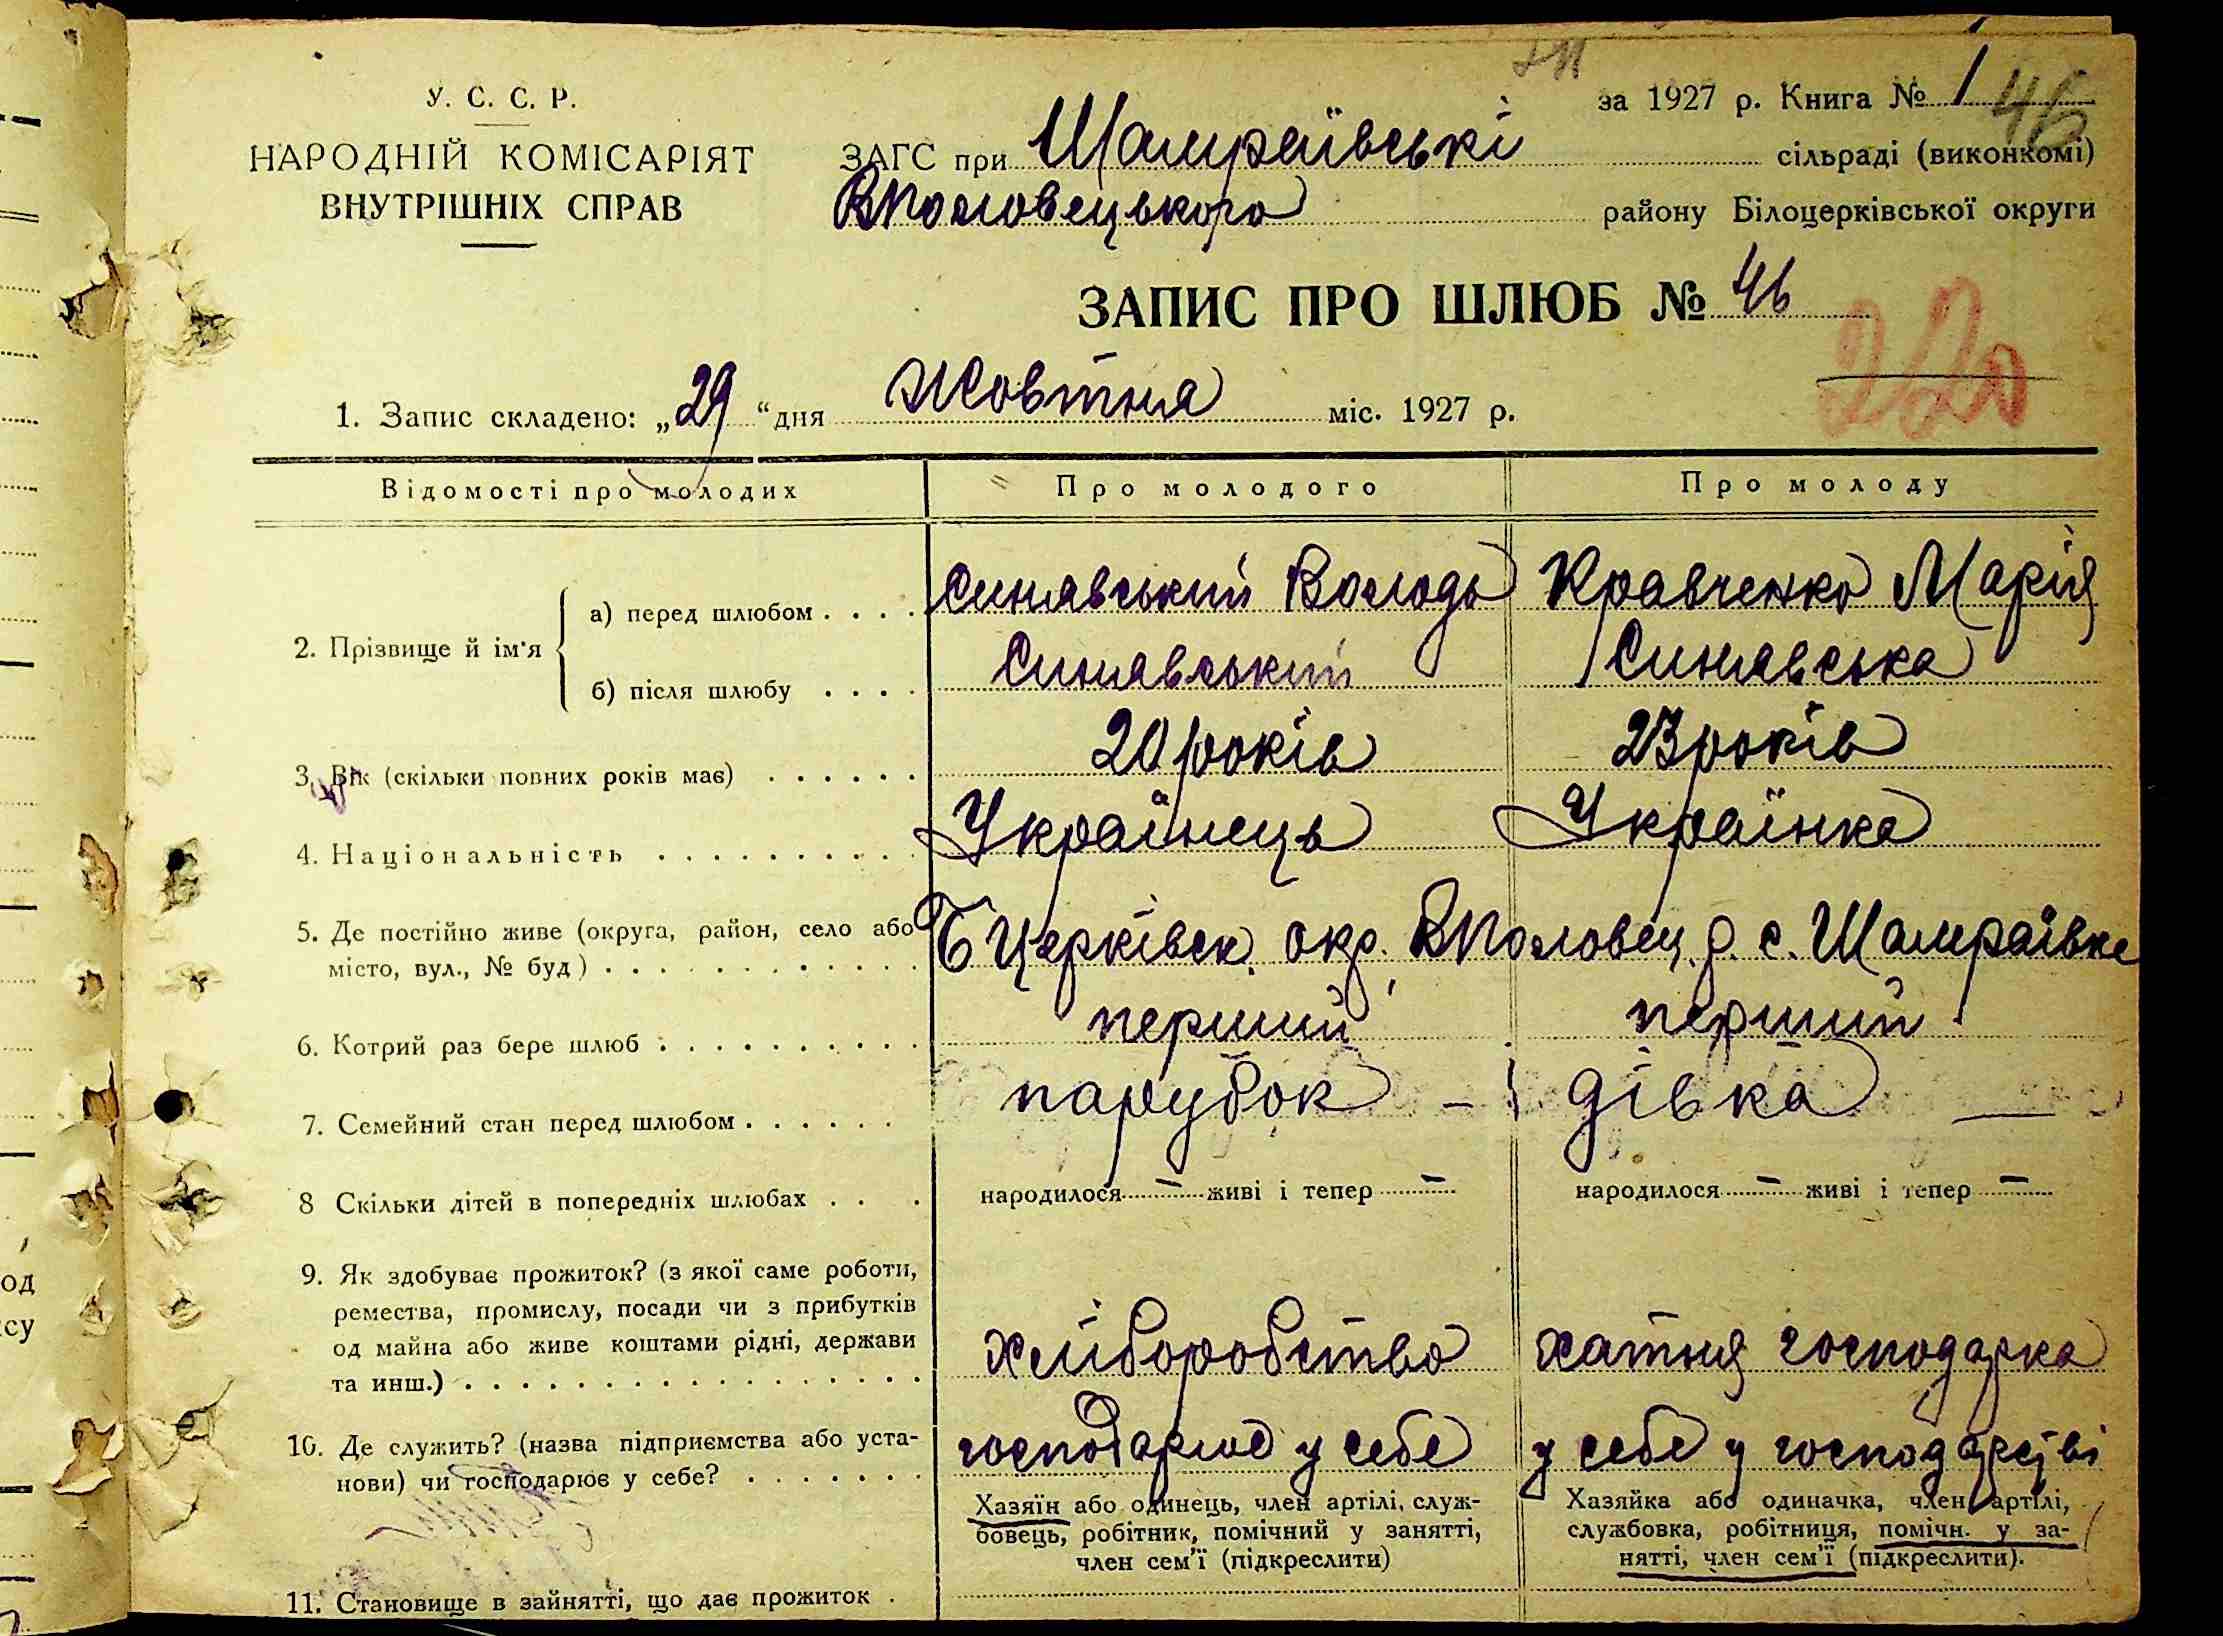 У. С. С. Р.
НАРОДНІЙ КОМІСАРІЯТ
ВНУТРІШНІХ СПРАВ
за 1927 р. Книга № 1 46
ЗАГС при Шамраївські сільраді (виконкомі)
ВПоловецького району Білоцерківської округи
ЗАПИС ПРО ШЛЮБ № 46
220
1. Запис складено: „29“ дня Жовтня міс. 1927 р.
Відомості про молодих Про молодого Про молоду
2. Прізвище й ім'я
а) перед шлюбом . . . . Синявський Володь Кравченко Марія
б) після шлюбу . . . . Синявський Синявська
3. Вік (скільки повних років має) . . . . . . 20 років 23 років
4. Національність . . . . . . . . . . Українець Українка
5. Де постійно живе (округа, район, село або
місто, вул., № буд) . . . . . . . . . . . . Б Церківск. окр. ВПоловец. р. с. Шамраївке
6. Котрий раз бере шлюб . . . . . . . . . . перший перший
7. Семейний стан перед шлюбом . . . . . . парубок — дівка —
8 Скільки дітей в попередніх шлюбах . . . народилося — живі і тепер — народилося — живі і тепер —
9. Як здобуває прожиток? (з якої саме роботи,
ремества, промислу, посади чи з прибутків
од майна або живе коштами рідні, держави
та инш.) . . . . . . . . . . . . . . . . . хліборобство хатня господарка
10. Де служить? (назва підприємства або уста-
нови) чи господарює у себе? . . . . . . . господарює у себе у себе у господарстві
Хазяїн або одинець, член артілі, служ-
бовець, робітник, помічний у занятті,
член сем'ї (підкреслити)
Хазяйка або одиначка, член артілі,
службовка, робітниця, помічн. у за-
нятті, член сем'ї (підкреслити).
11. Становище в зайнятті, що дає прожиток .
од
су